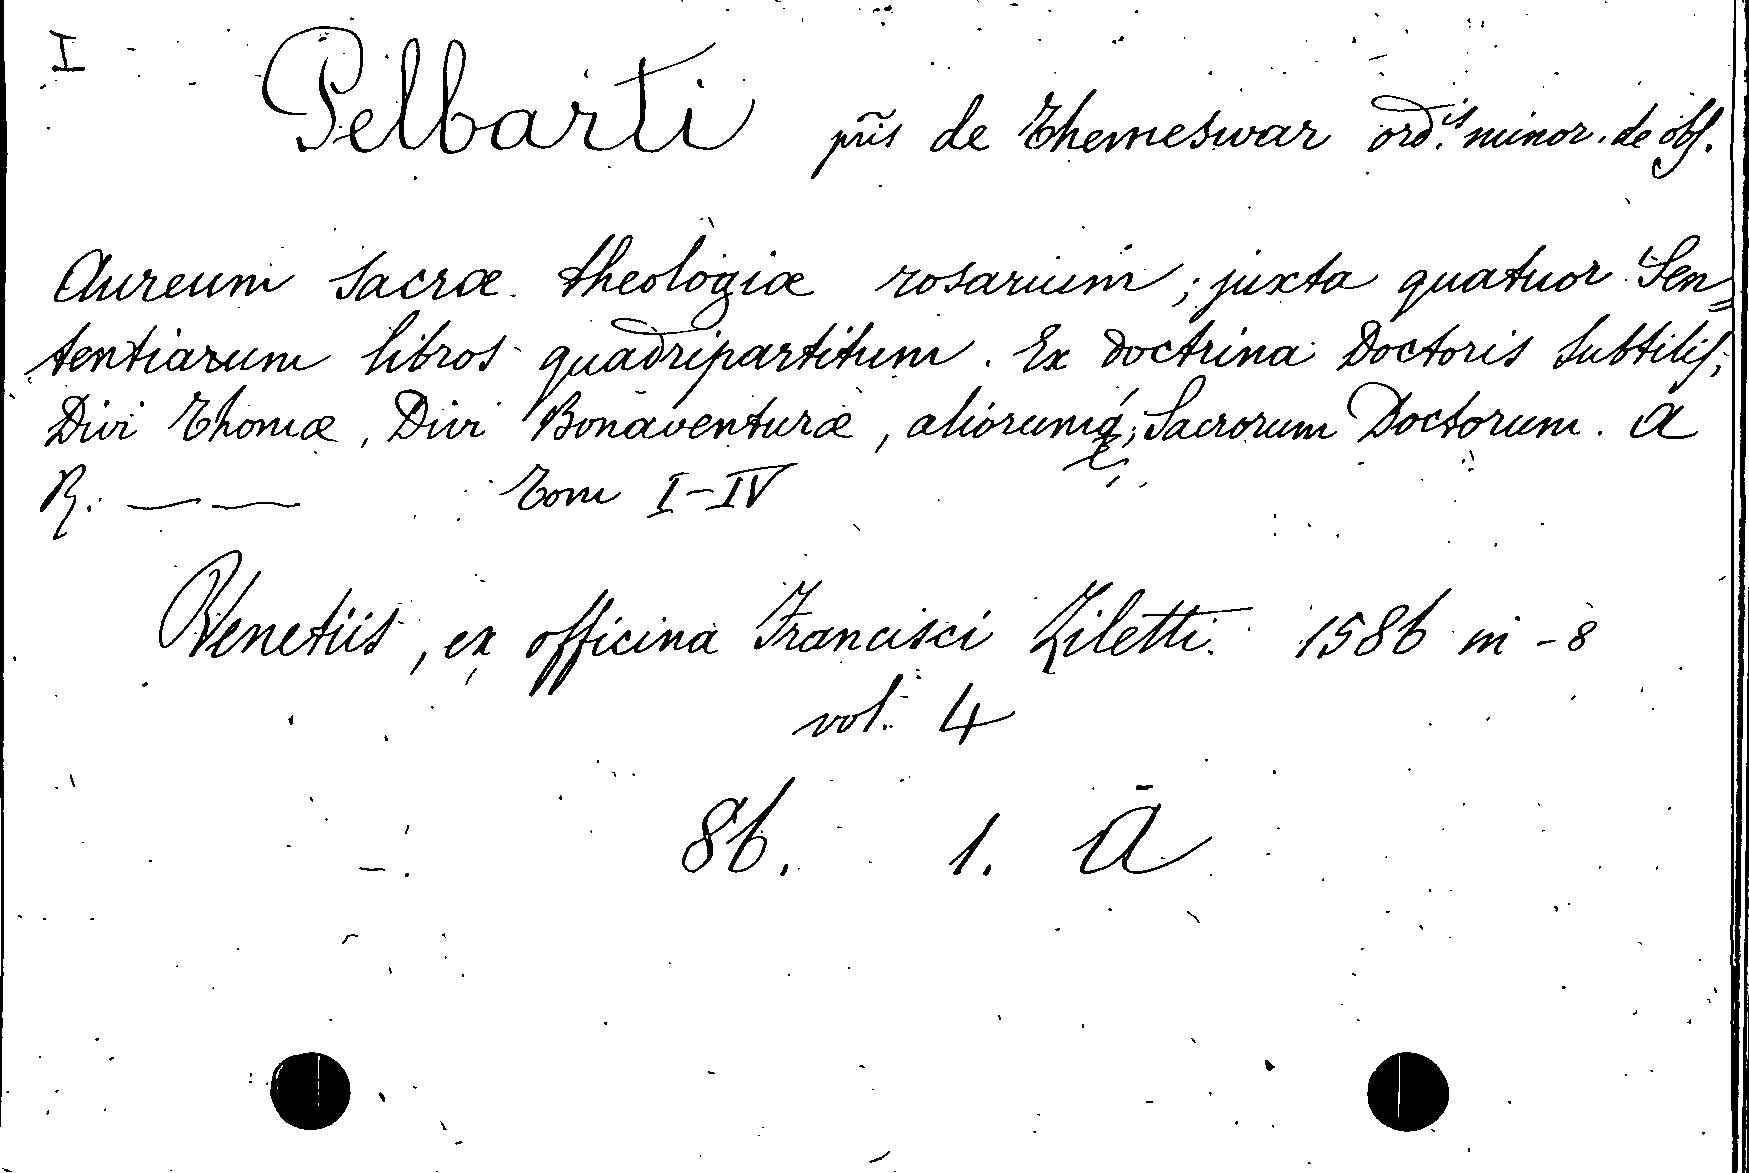 I
Pelbarti pūs de Themeswar ord.is minor. de obs.
Aureum Sacræ theologiæ rosarium; juxta quatuor Sen-
tentiarum libros quadripartitum. Ex doctrina Doctoris Subtilis;
Divi Thomæ, Divi Bonaventuræ, aliorumq; Sacrorum Doctorum. A
R. — — Tom I-IV
Venetiis, ex officina Francisci Ziletti. 1586 in - 8
vol. 4
86. 1. A